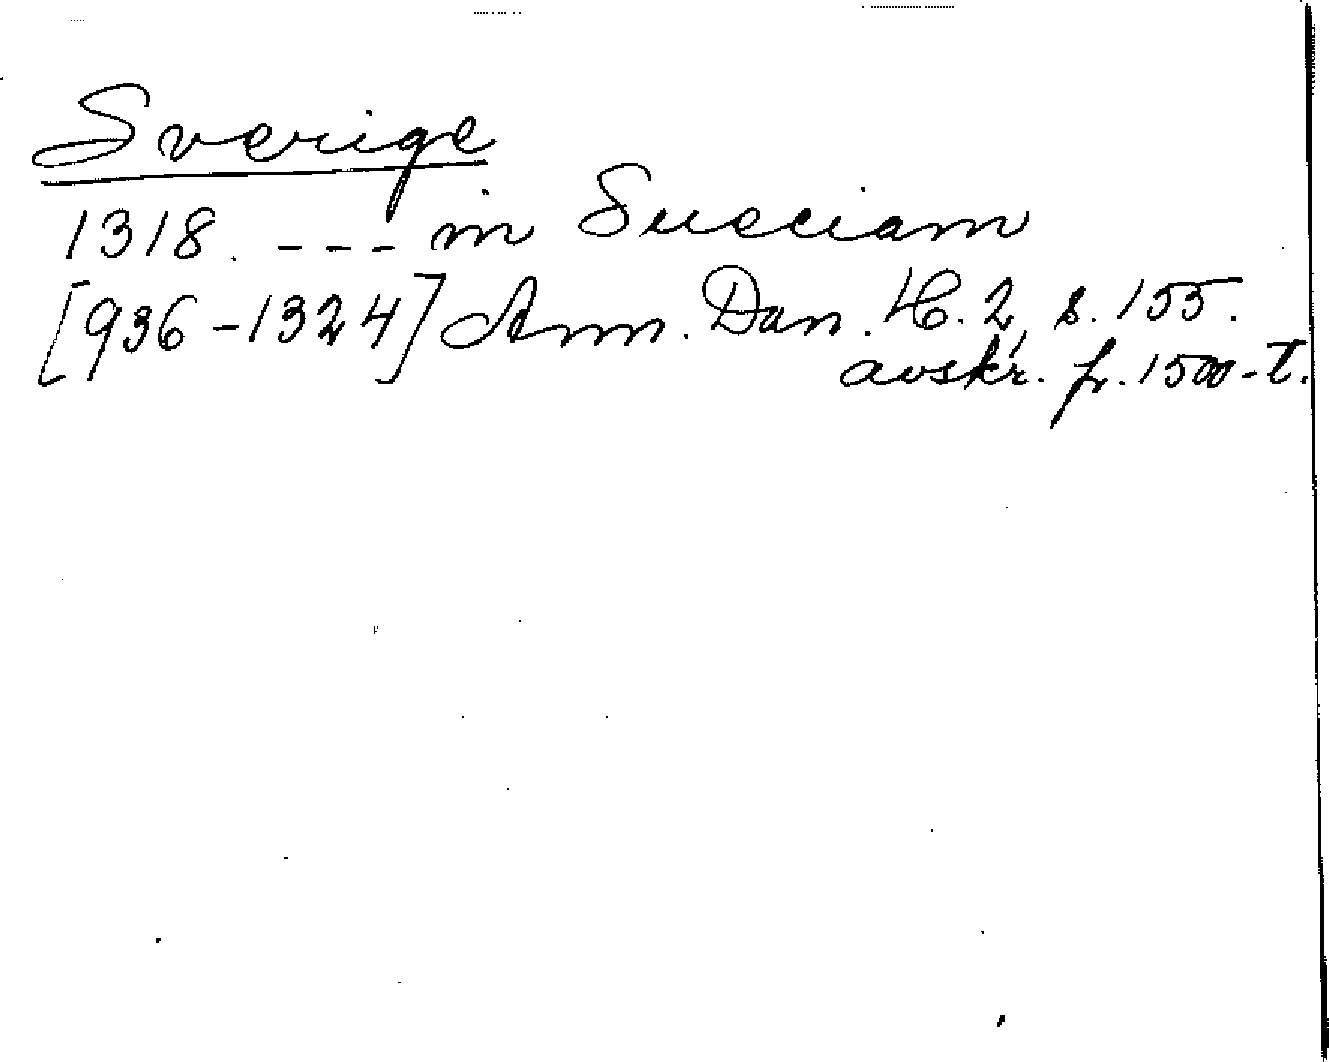 Sverige
1318. --- in Sueciam
[936-1324] Ann. Dan. H. 2, s. 155.
avskr. fr. 1500-t.